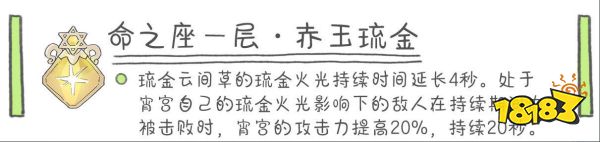 命之座一层·赤玉琉金
琉金云间草的琉金火光持续时间延长4秒。处于
宵宫自己的琉金火光影响下的敌人在持续期
被击败时，宵宫的攻击力提高20%，持续20秒。
18183